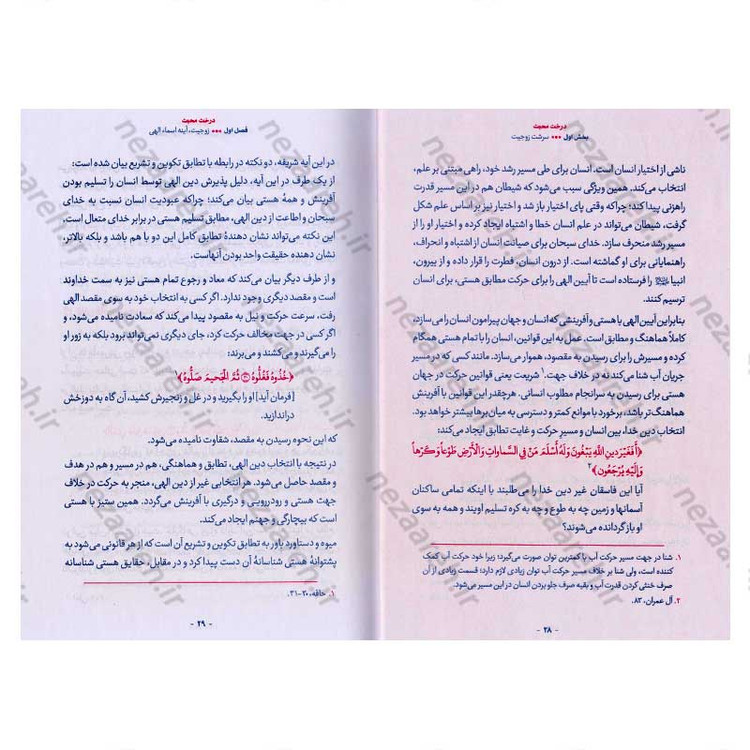 درخت محبت
بخش اول ••• سرشت زوجیت
ناشی از اختیار انسان است. انسان برای طی مسیر رشد خود، راهی مبتنی بر علم،
انتخاب می‌کند. همین ویژگی سبب می‌شود که شیطان هم در این مسیر قدرت
راهزنی پیدا کند؛ چراکه وقتی پای اختیار باز شد و اختیار نیز بر اساس علم شکل
گرفت، شیطان می‌تواند در علم انسان خطا و اشتباه ایجاد کرده و اختیار او را از
مسیر رشد منحرف سازد. خدای سبحان برای صیانت انسان از اشتباه و انحراف،
راهنمایانی برای او گماشته است. از درون انسان، فطرت را قرار داده و از بیرون،
انبیا را فرستاده است تا آیین الهی را برای حرکت مطابق هستی، برای انسان
ترسیم کنند.
بنابراین آیین الهی با هستی و آفرینشی که انسان و جهان پیرامون انسان را می‌سازد،
کاملاً هماهنگ و مطابق است. عمل به این قوانین، انسان را با تمام هستی همگام
کرده و مسیرش را برای رسیدن به مقصود، هموار می‌سازد. مانند کسی که در مسیر
جریان آب شنا می‌کند نه در خلاف جهت.۱ شریعت یعنی قوانین حرکت در جهان
هستی برای رسیدن به سرانجام مطلوب انسانی. هرچقدر این قوانین با آفرینش
هماهنگ‌تر باشد، برخورد با موانع کمتر و دسترسی به میان‌برها بیشتر خواهد بود.
انتخاب دین خدا، بین انسان و مسیر حرکت و غایت تطابق ایجاد می‌کند:
﴿أَفَغَيْرَ دِينِ اللَّهِ يَبْغُونَ وَلَهُ أَسْلَمَ مَنْ فِي السَّماواتِ وَالْأَرْضِ طَوْعاً وَكَرْهاً
وَإِلَيْهِ يُرْجَعُونَ﴾۲
آیا این فاسقان غیر دین خدا را می‌طلبند با اینکه تمامی ساکنان
آسمانها و زمین چه به طوع و چه به کره تسلیم اویند و همه به سوی
او بازگردانده می‌شوند؟
۱. شنا در جهت مسیر حرکت آب با کمترین توان صورت می‌گیرد؛ زیرا خود حرکت آب کمک
کننده است، ولی شنا بر خلاف مسیر حرکت آب توان زیادی لازم دارد؛ قسمت زیادی از آن
صرف خنثی کردن قدرت آب و بقیه صرف جلو بردن انسان در این مسیر می‌شود.
۲. آل عمران، ۸۳.
- ۲۸ -
درخت محبت
فصل اول ••• زوجیت، آینه اسماء الهی
در این آیه شریفه، دو نکته در رابطه با تطابق تکوین و تشریع بیان شده است:
از یک طرف در این آیه، دلیل پذیرش دین الهی توسط انسان را تسلیم بودن
آفرینش و همهٔ هستی بیان می‌کند؛ چراکه عبودیت انسان نسبت به خدای
سبحان و اطاعت از دین الهی، مطابق تسلیم هستی در برابر خدای متعال است.
این نکته می‌تواند نشان دهندهٔ تطابق کامل این دو با هم باشد و بلکه بالاتر،
نشان دهنده حقیقت واحد بودن آنهاست.
و از طرف دیگر بیان می‌کند که معاد و رجوع تمام هستی نیز به سمت خداوند
است و مقصد دیگری وجود ندارد. اگر کسی به انتخاب خود به سوی مقصد الهی
رفت، سرعت حرکت و نیل به مقصود پیدا می‌کند که سعادت نامیده می‌شود، و
اگر کسی در جهت مخالف حرکت کرد، جای دیگری نمی‌تواند برود بلکه به زور او
را می‌گیرند و می‌کشند و می‌برند:
﴿خُذُوهُ فَغُلُّوهُ ۳۰ ثُمَّ الْجَحِيمَ صَلُّوهُ﴾۱
[فرمان آید] او را بگیرید و در غل و زنجیرش کشید، آن گاه به دوزخش
دراندازید.
که این نحوه رسیدن به مقصد، شقاوت نامیده می‌شود.
در نتیجه با انتخاب دین الهی، تطابق و هماهنگی، هم در مسیر و هم در هدف
و مقصد حاصل می‌شود. هر انتخابی غیر از دین الهی، منجر به حرکت در خلاف
جهت هستی و رودررویی و درگیری با آفرینش می‌گردد. همین ستیز با هستی
است که بیچارگی و جهنم ایجاد می‌کند.
میوه و دستاورد باور به تطابق تکوین و تشریع آن است که از هر قانونی می‌شود به
پشتوانهٔ هستی شناسانهٔ آن دست پیدا کرد و در مقابل، حقایق هستی شناسانه
۱. حاقه، ۳۰-۳۱.
- ۲۹ -
nezaareh.ir